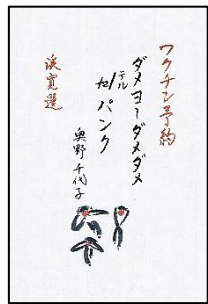 ワクチン予約
ダメヨーダメダメ
テル
telパンク
奥野千代子
渓寛選